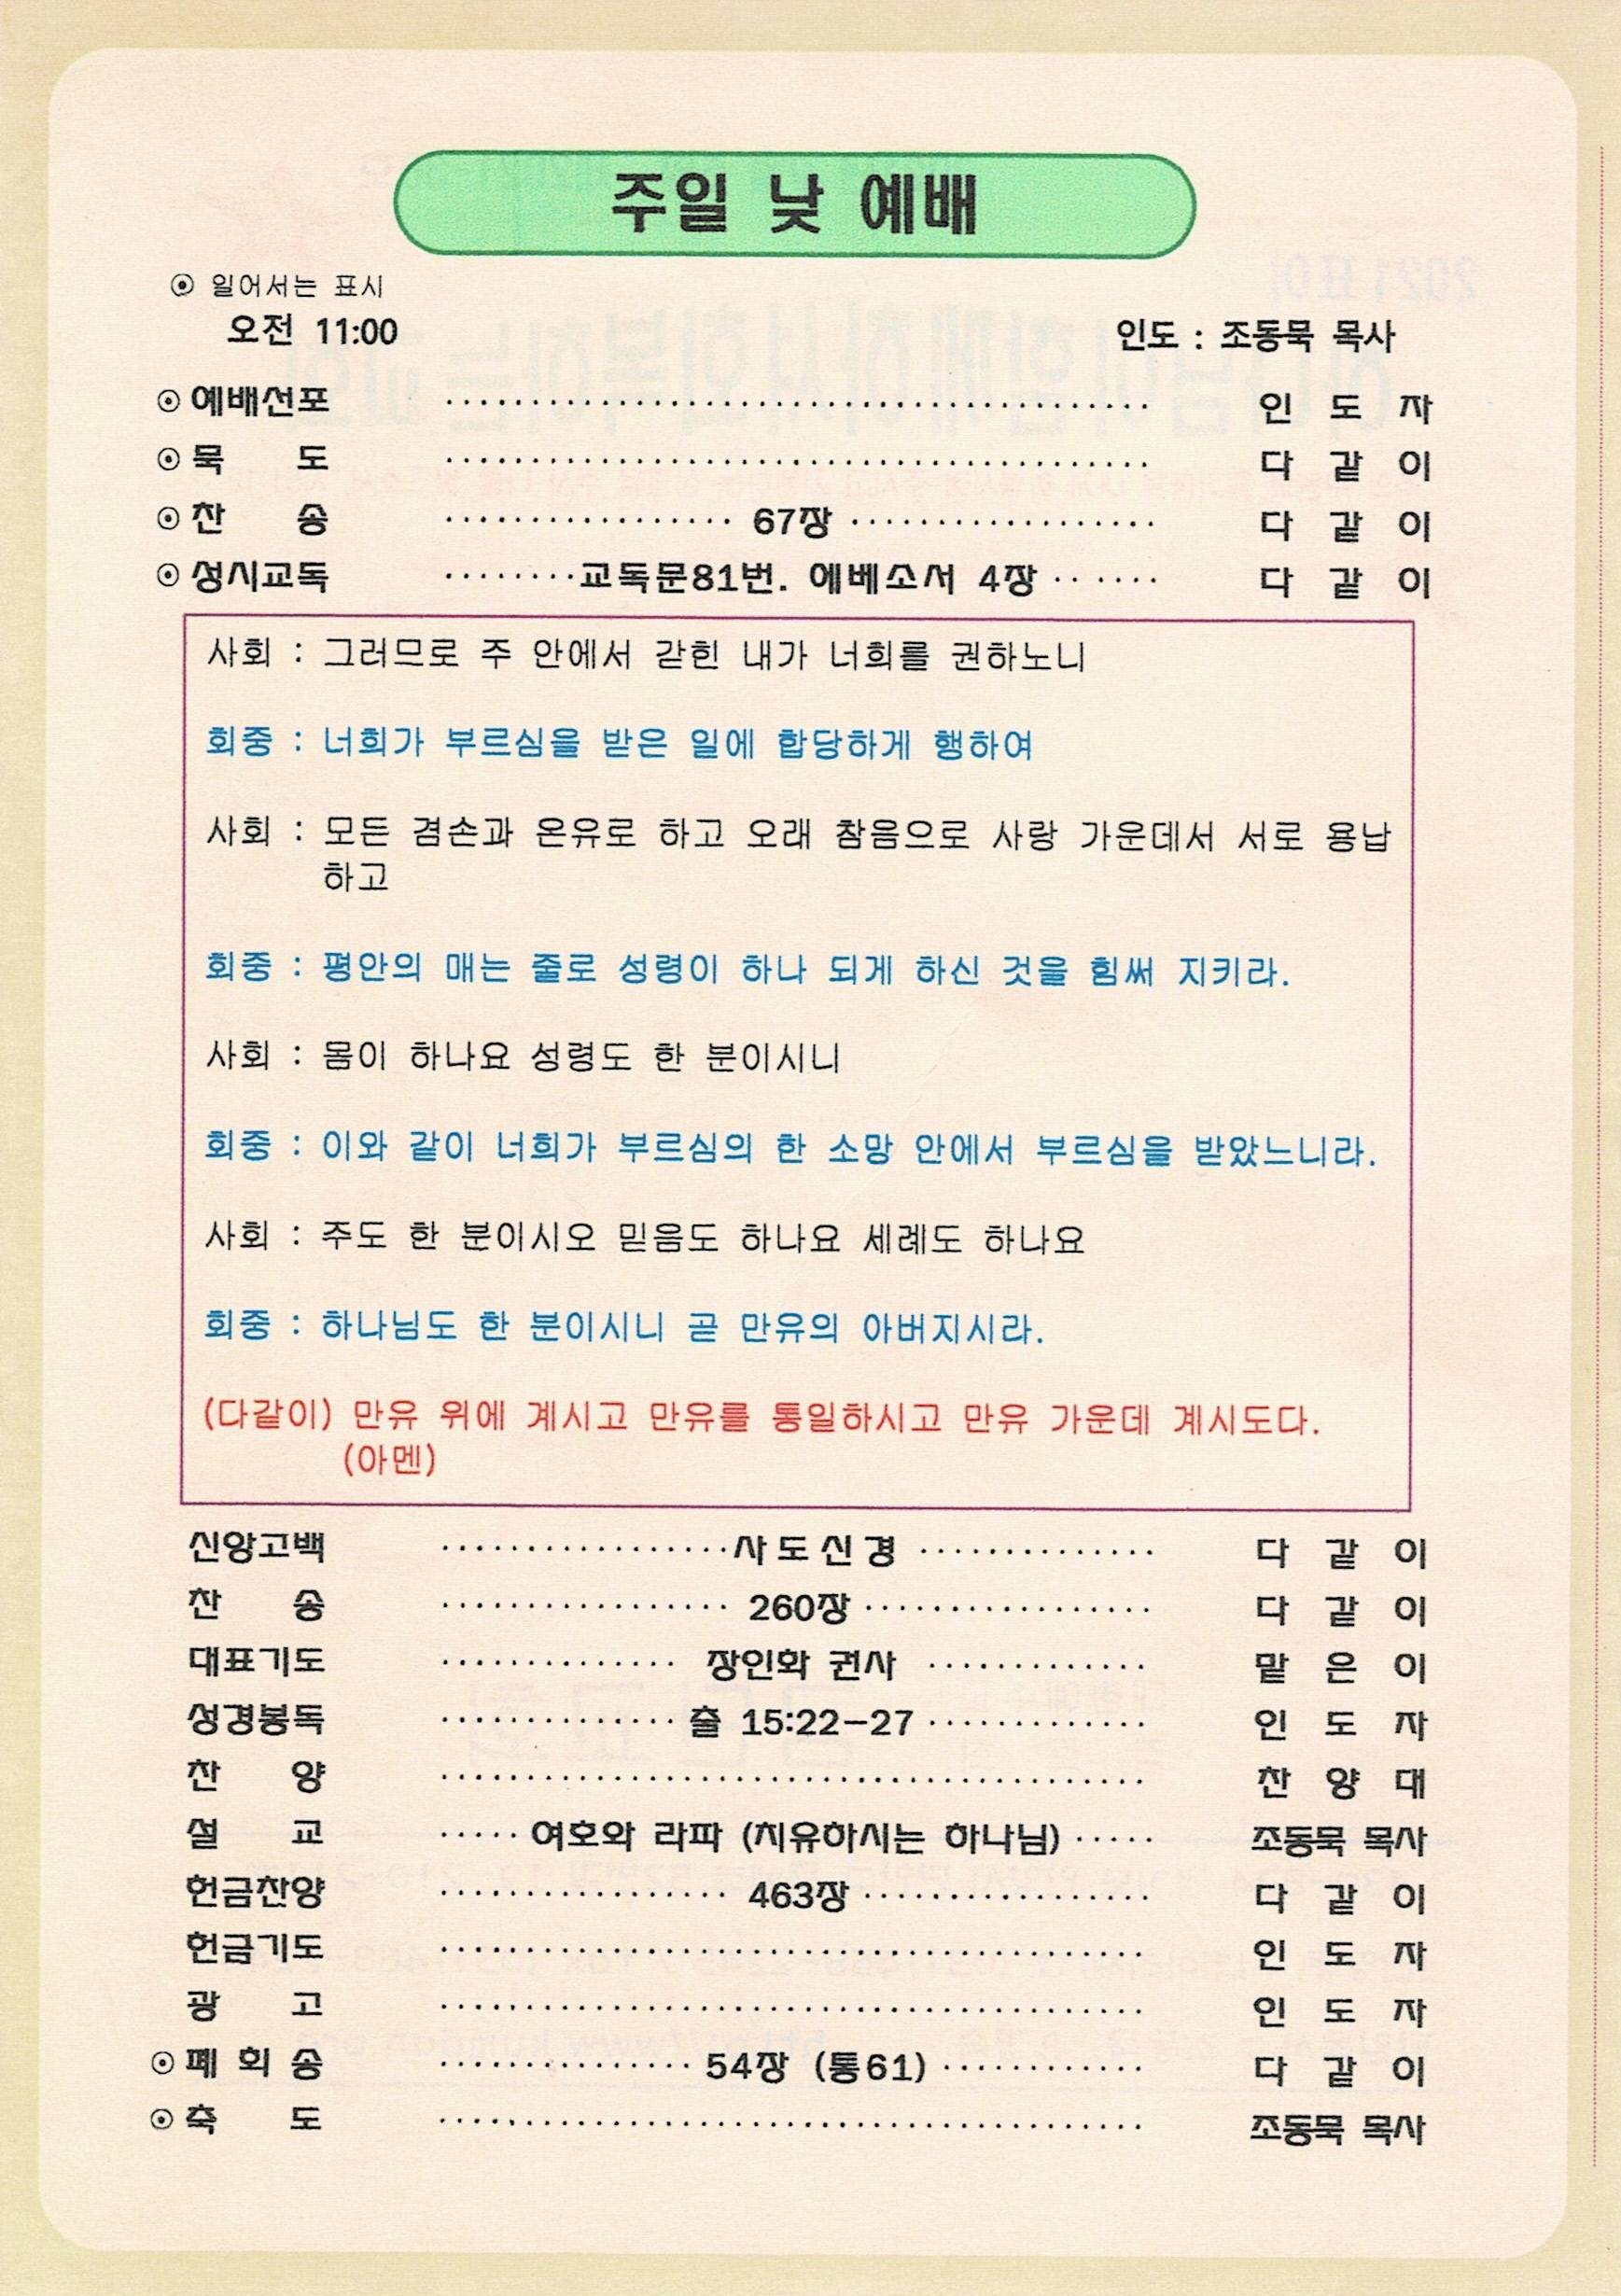 주일 낮 예배
⊙ 일어서는 표시
오전 11:00 인도 : 조동묵 목사
⊙ 예배선포 ········································· 인 도 자
⊙ 묵 도 ········································· 다 같 이
⊙ 찬 송 ················· 67장 ·················· 다 같 이
⊙ 성시교독 ········교독문81번. 에베소서 4장 ······ 다 같 이
사회 : 그러므로 주 안에서 갇힌 내가 너희를 권하노니
회중 : 너희가 부르심을 받은 일에 합당하게 행하여
사회 : 모든 겸손과 온유로 하고 오래 참음으로 사랑 가운데서 서로 용납
하고
회중 : 평안의 매는 줄로 성령이 하나 되게 하신 것을 힘써 지키라.
사회 : 몸이 하나요 성령도 한 분이시니
회중 : 이와 같이 너희가 부르심의 한 소망 안에서 부르심을 받았느니라.
사회 : 주도 한 분이시오 믿음도 하나요 세례도 하나요
회중 : 하나님도 한 분이시니 곧 만유의 아버지시라.
(다같이) 만유 위에 계시고 만유를 통일하시고 만유 가운데 계시도다.
(아멘)
신앙고백 ·················사 도 신 경 ·············· 다 같 이
찬 송 ················· 260장 ················· 다 같 이
대표기도 ·············· 장인화 권사 ············· 맡 은 이
성경봉독 ·············· 출 15:22-27 ············· 인 도 자
찬 양 ········································· 찬 양 대
설 교 ····· 여호와 라파 (치유하시는 하나님) ····· 조동묵 목사
헌금찬양 ················· 463장 ················· 다 같 이
헌금기도 ········································· 인 도 자
광 고 ········································· 인 도 자
⊙ 폐 회 송 ··············· 54장 (통61) ············ 다 같 이
⊙ 축 도 ········································· 조동묵 목사